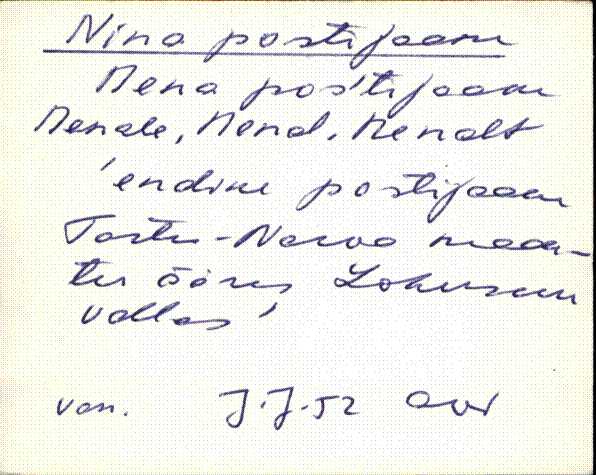 Nina postijaam
Nena pos'tijaam
Nenale, Nenal, Nenalt
'endine postijaam
Tartu-Narva maan-
tee ääres, Lohusuu
vallas'
van. J.J.52 Avr